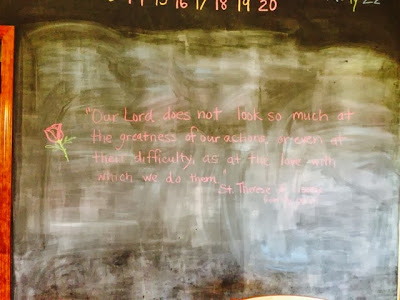 14 15 16 17 18 19 20
22
"Our Lord does not look so much at
the greatness of our actions, or even at
their difficulty, as at the love with
which we do them."
St. Therese